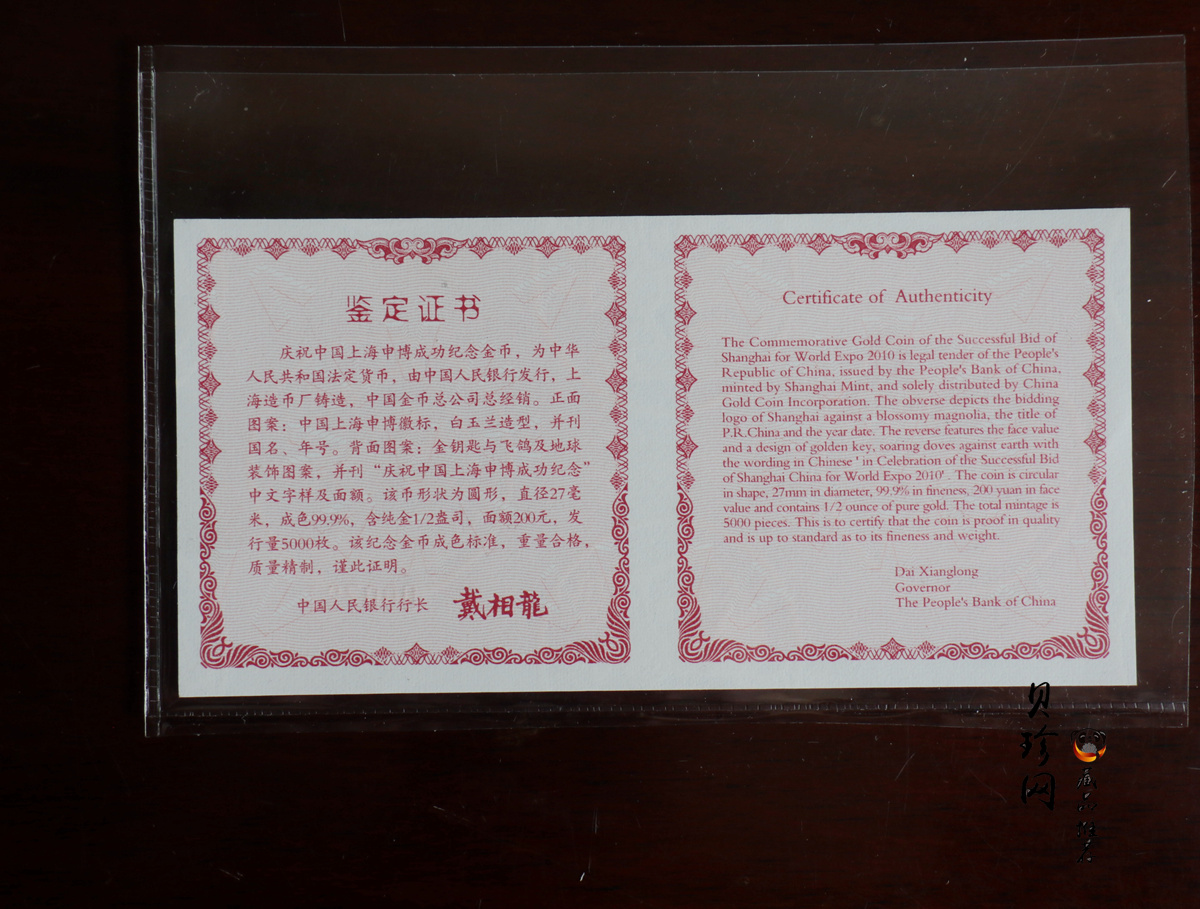 鉴定证书
庆祝中国上海申博成功纪念金币，为中华
人民共和国法定货币，由中国人民银行发行，上
海造币厂铸造，中国金币总公司总经销。正面
图案：中国上海申博徽标，白玉兰造型，并刊
国名、年号。背面图案：金钥匙与飞鸽及地球
装饰图案，并刊“庆祝中国上海申博成功纪念”
中文字样及面额。该币形状为圆形，直径27毫
米，成色99.9%，含纯金1/2盎司，面额200元，发
行量5000枚。该纪念金币成色标准，重量合格，
质量精制，谨此证明。
中国人民银行行长 戴相龍
Certificate of Authenticity
The Commemorative Gold Coin of the Successful Bid of
Shanghai for World Expo 2010 is legal tender of the People's
Republic of China, issued by the People's Bank of China,
minted by Shanghai Mint, and solely distributed by China
Gold Coin Incorporation. The obverse depicts the bidding
logo of Shanghai against a blossomy magnolia, the title of
P.R.China and the year date. The reverse features the face value
and a design of golden key, soaring doves against earth with
the wording in Chinese ' in Celebration of the Successful Bid
of Shanghai China for World Expo 2010' . The coin is circular
in shape, 27mm in diameter, 99.9% in fineness, 200 yuan in face
value and contains 1/2 ounce of pure gold. The total mintage is
5000 pieces. This is to certify that the coin is proof in quality
and is up to standard as to its fineness and weight.
Dai Xianglong
Governor
The People's Bank of China
贝珍网
藏品